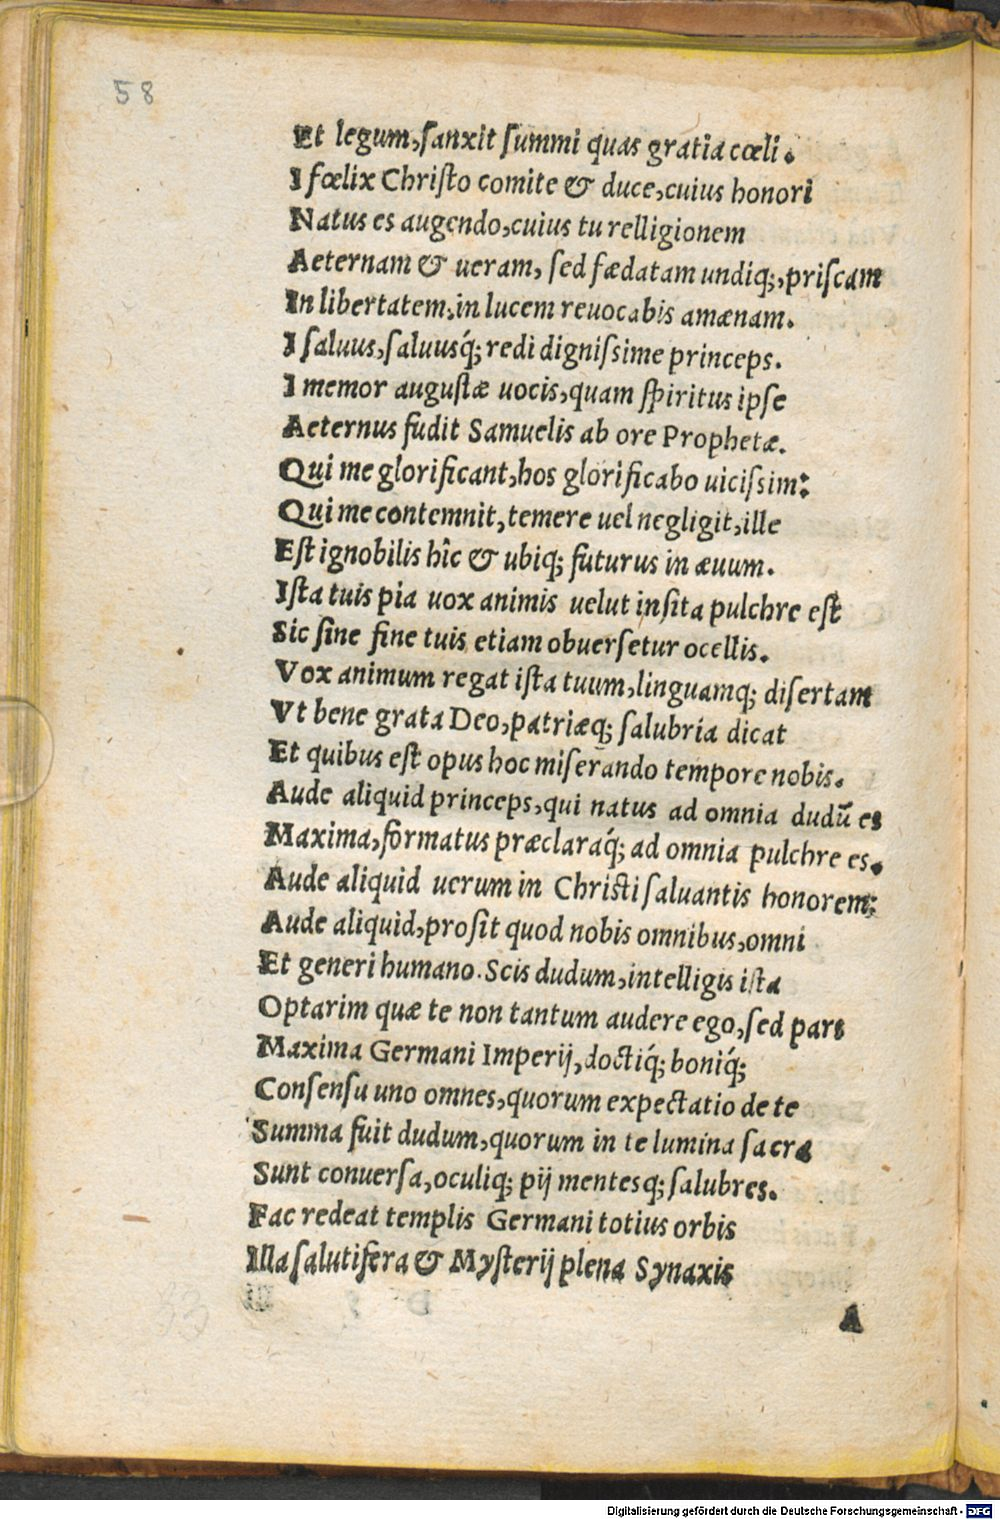 58
Et legum, ſanxit ſummi quas gratia cœli.
I fœlix Chriſto comite & duce, cuius honori
Natus es augendo, cuius tu relligionem
Aeternam & ueram, ſed fædatam undiq;, priſcam
In libertatem, in lucem reuocabis amænam.
I ſaluus, ſaluusq́; redi digniſsime princeps.
I memor auguſtæ uocis, quam ſpiritus ipſe
Aeternus fudit Samuelis ab ore Prophetæ.
Qui me glorificant, hos glorificabo uiciſsim:
Qui me contemnit, temere uel negligit, ille
Eſt ignobilis hîc & ubiq; futurus in æuum.
Iſta tuis pia uox animis uelut inſita pulchre eſt
Sic ſine fine tuis etiam obuerſetur ocellis.
Vox animum regat iſta tuum, linguamq; diſertam
Vt bene grata Deo, patriæq; ſalubria dicat
Et quibus eſt opus hoc miſerando tempore nobis.
Aude aliquid princeps, qui natus ad omnia dudũ es
Maxima, formatus præclaraq́; ad omnia pulchre es.
Aude aliquid uerum in Chriſti ſaluantis honorem:
Aude aliquid, proſit quod nobis omnibus, omni
Et generi humano. Scis dudum, intelligis iſta
Optarim quæ te non tantum audere ego, ſed pars
Maxima Germani Imperij, doctiq́; boniq́;
Conſenſu uno omnes, quorum expectatio de te
Summa fuit dudum, quorum in te lumina ſacra
Sunt conuerſa, oculiq; pij mentesq; ſalubres.
Fac redeat templis Germani totius orbis
Illa ſalutifera & Myſterij plena Synaxis
A
Digitalisierung gefördert durch die Deutsche Forschungsgemeinschaft - DFG